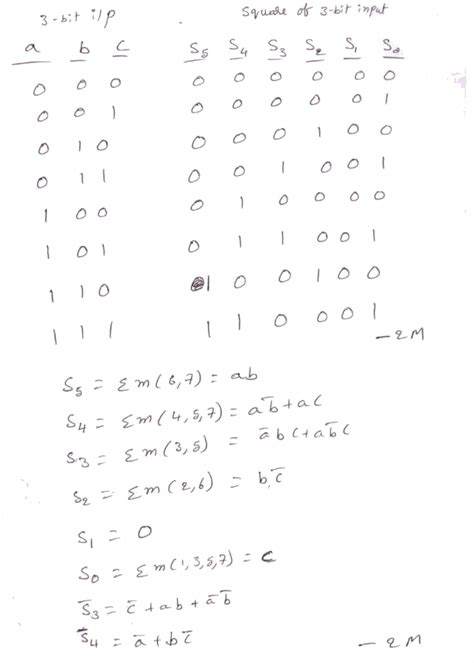 3-bit i/p Square of 3-bit input
a b c S₅ S₄ S₃ S₂ S₁ S₀
0 0 0 0 0 0 0 0 0
0 0 1 0 0 0 0 0 1
0 1 0 0 0 0 1 0 0
0 1 1 0 0 1 0 0 1
1 0 0 0 1 0 0 0 0
1 0 1 0 1 1 0 0 1
1 1 0 1 0 0 1 0 0
1 1 1 1 1 0 0 0 1
— 2M
S₅ = Σm(6,7) = ab
S₄ = Σm(4,5,7) = ab̅ + ac
S₃ = Σm(3,5) = a̅bc + ab̅c
S₂ = Σm(2,6) = b.c̅
S₁ = 0
S₀ = Σm(1,3,5,7) = c
S̅₃ = c̅ + ab + a̅b̅
S̅₄ = a̅ + bc̅ — 2M